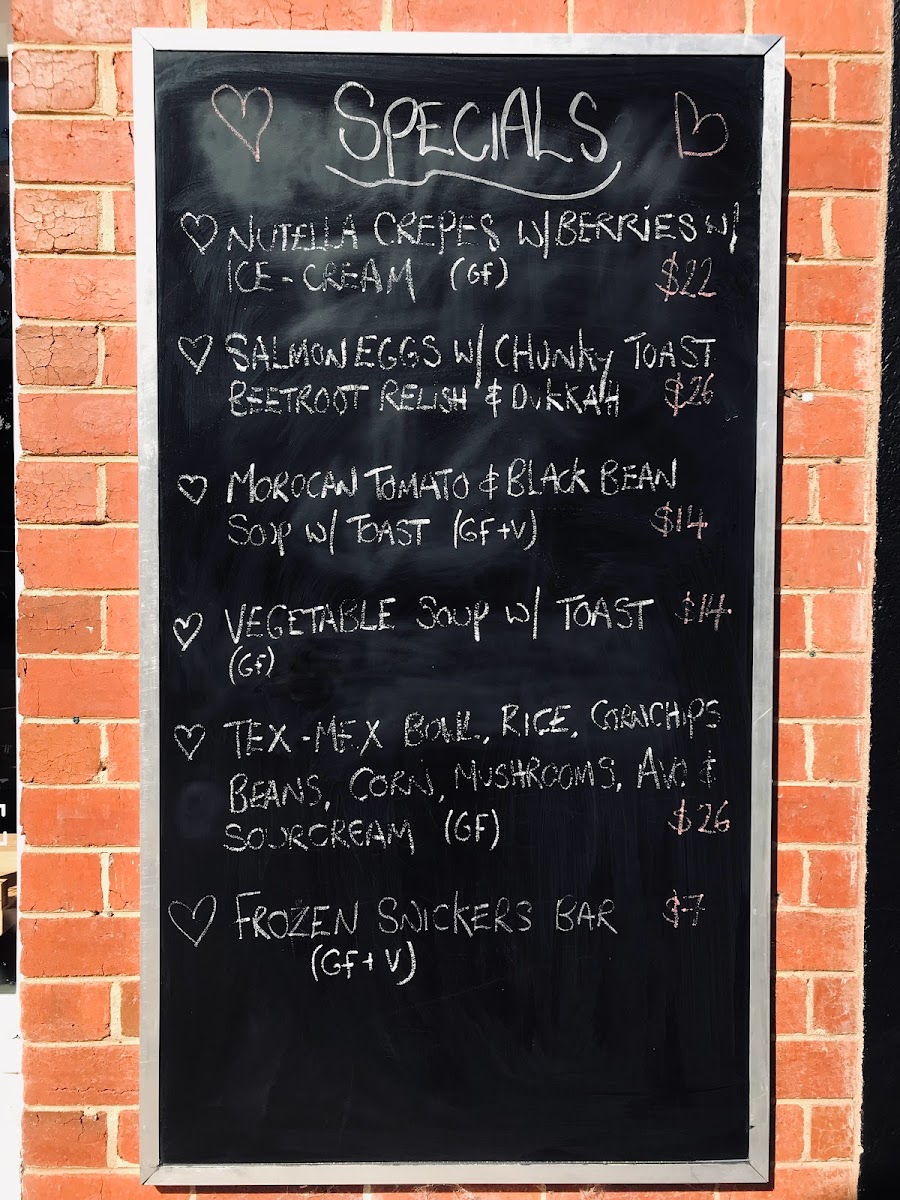 SPECIALS
NUTELLA CREPES W/BERRIES W/
ICE-CREAM (GF) $22
SALMON EGGS W/ CHUNKY TOAST
BEETROOT RELISH & DUKKAH $26
MOROCAN TOMATO & BLACK BEAN
SOUP W/ TOAST (GF+V) $14
VEGETABLE SOUP W/ TOAST $14
(GF)
TEX-MEX BOWL, RICE, CORNCHIPS
BEANS, CORN, MUSHROOMS, AVO, &
SOURCREAM (GF) $26
FROZEN SNICKERS BAR $7
(GF+V)